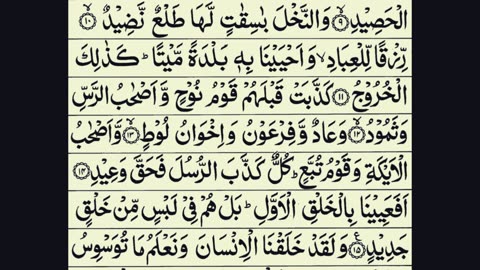 الْحَصِيْدِ ۙ﴿۹﴾ وَالنَّخْلَ بٰسِقٰتٍ لَّهَا طَلْعٌ نَّضِيْدٌ ۙ﴿۱۰﴾
رِّزْقًا لِّلْعِبَادِ ۙ وَاَحْيَيْنَا بِهٖ بَلْدَةً مَّيْتًا ؕ كَذٰلِكَ
الْخُرُوْجُ ﴿۱۱﴾ كَذَّبَتْ قَبْلَهُمْ قَوْمُ نُوْحٍ وَّاَصْحٰبُ الرَّسِّ
وَثَمُوْدُ ۙ﴿۱۲﴾ وَعَادٌ وَّفِرْعَوْنُ وَاِخْوَانُ لُوْطٍ ۙ﴿۱۳﴾ وَّاَصْحٰبُ
الْاَيْكَةِ وَقَوْمُ تُبَّعٍ ؕ كُلٌّ كَذَّبَ الرُّسُلَ فَحَقَّ وَعِيْدِ ﴿۱۴﴾
اَفَعَيِيْنَا بِالْخَلْقِ الْاَوَّلِ ؕ بَلْ هُمْ فِيْ لَبْسٍ مِّنْ خَلْقٍ
جَدِيْدٍ ﴿۱۵﴾ۧ وَلَقَدْ خَلَقْنَا الْاِنْسَانَ وَنَعْلَمُ مَا تُوَسْوِسُ